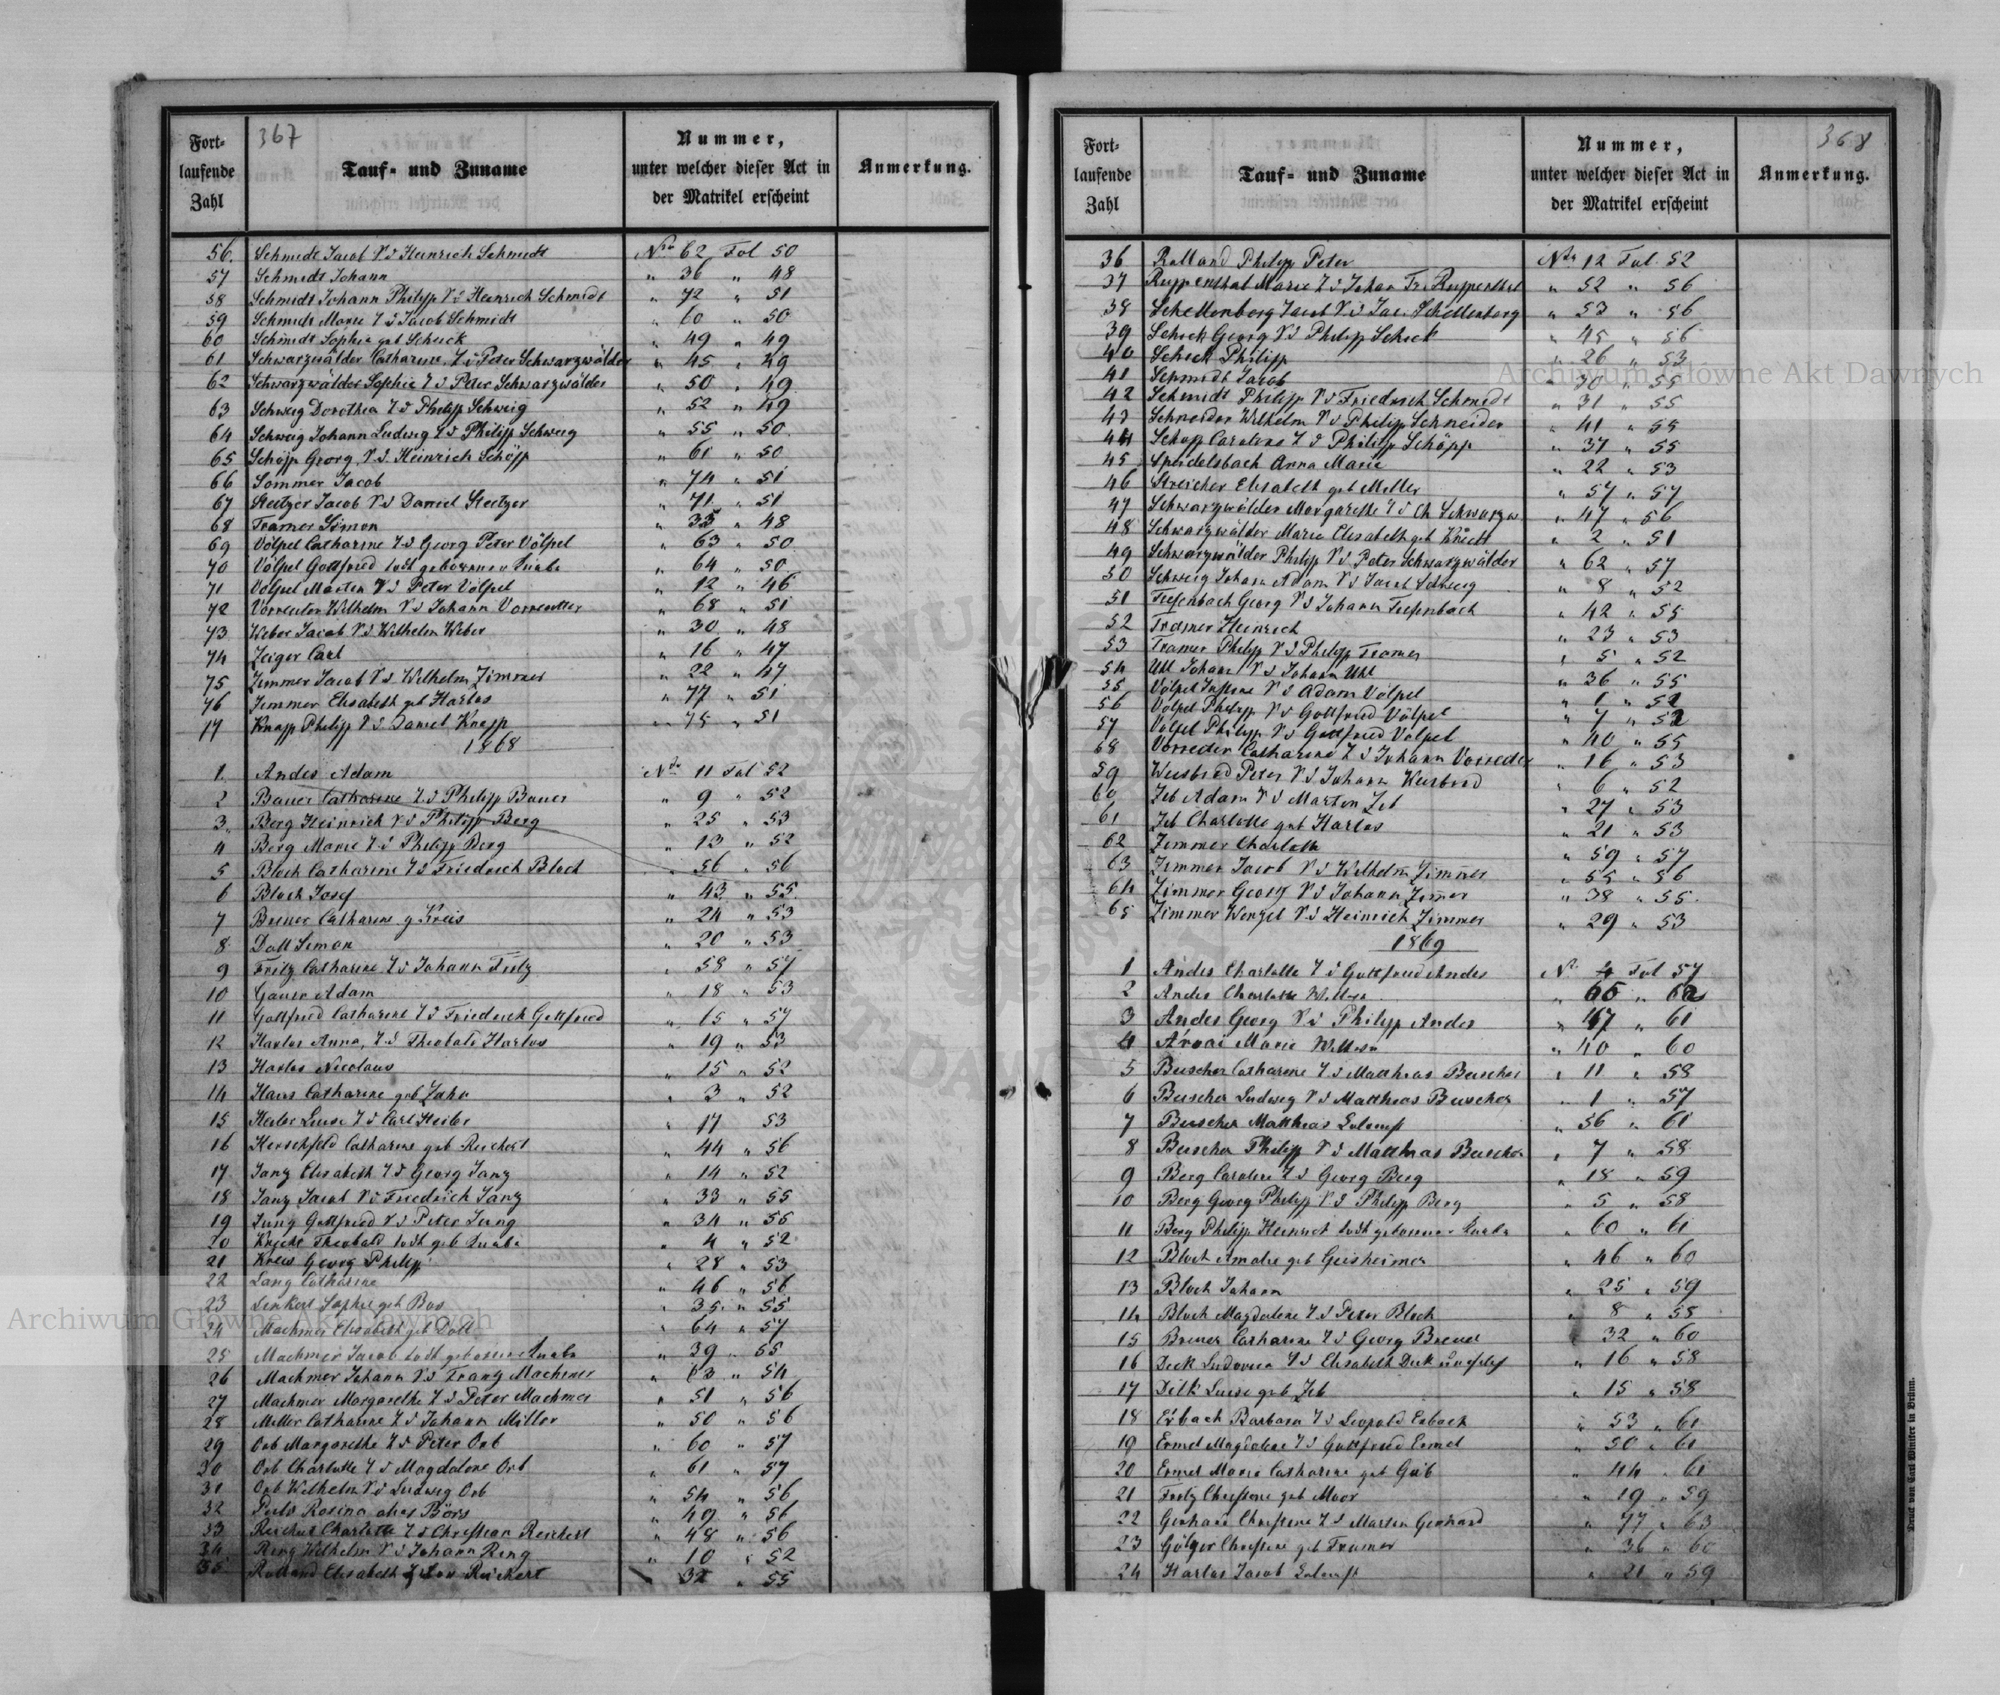 367
Fort-
laufende
Zahl
Tauf- und Zuname
Nummer,
unter welcher dieser Act in
der Matrikel erscheint
Anmerkung.
56. Schmidt Jacob S d Heinrich Schmidt No 62 Fol 50
57 Schmidt Johann " 36 " 48
58 Schmidt Johann Philipp S d Heinrich Schmidt " 72 " 51
59 Schmidt Marie T d Jacob Schmidt " 60 " 50
60 Schmidt Sophie geb Scheick " 49 " 49
61 Schwarzwälder Catharine T d Peter Schwarzwälder " 45 " 49
62 Schwarzwälder Sophie T d Peter Schwarzwälder " 50 " 49
63 Schweig Dorothea T d Philipp Schweig " 52 " 49
64 Schweig Johann Ludwig S d Philipp Schweig " 55 " 50
65 Schöpp Georg S d Heinrich Schöpp " 61 " 50
66 Sommer Jacob " 74 " 51
67 Steitzer Jacob S d Daniel Steitzer " 71 " 51
68 Tramer Simon " 35 " 48
69 Völpel Catharine T d Georg Peter Völpel " 63 " 50
70 Völpel Gottfried todt geborener Knabe " 64 " 50
71 Völpel Martin S d Peter Völpel " 12 " 46
72 Vorreuter Wilhelm S d Johann Vorreutter " 68 " 51
73 Weber Jacob S d Wilhelm Weber " 30 " 48
74 Zeiger Carl " 16 " 47
75 Zimmer Jacob S d Wilhelm Zimmer " 22 " 47
76 Zimmer Elisabeth geb Harlos " 77 " 51
77 Knapp Philipp S d Daniel Knapp " 75 " 51
1868
1 Andes Adam No 11 Fol 52
2 Bauer Catharine T d Philipp Bauer " 9 " 52
3 Berg Heinrich S d Philipp Berg " 25 " 53
4 Berg Marie T d Philipp Berg " 13 " 52
5 Bloch Catharine T d Friedrich Bloch " 56 " 56
6 Bloch Josef " 43 " 55
7 Breuer Catharine g Kreis " 24 " 53
8 Doll Simon " 20 " 53
9 Fritz Catharine T d Johann Fritz " 58 " 57
10 Gauer Adam " 18 " 53
11 Gottfried Catharine T d Friedrich Gottfried " 15 " 57
12 Harlos Anna, T d Theobald Harlos " 19 " 53
13 Harlos Nicolaus " 15 " 52
14 Haus Catharine geb Jahn " 3 " 52
15 Heiber Luise T d Carl Heiber " 17 53
16 Herschfeld Catharine geb Reichert " 44 " 56
17 Janz Elisabeth T d Georg Janz " 14 " 52
18 Janz Jacob S d Friedrich Janz " 33 " 55
19 Jung Gottfried S d Peter Jung " 34 " 55
20 Theobald todt geb Knabe " 4 " 52
21 Kreis Georg Philipp " 28 " 53
22 Lang Catharine " 46 " 56
23 Denkert Sophie geb Bos " 35 " 55
24 Machmer Elisabeth geb Doll " 64 " 57
25 Machmer Jacob todt geborener Knabe " 39 " 55
26 Machmer Johann S d Franz Machmer " 63 " 54
27 Machmer Margarethe T d Peter Machmer " 51 " 56
28 Miller Catharine T d Johann Miller " 50 " 56
29 Orb Margarethe T d Peter Orb " 60 " 57
30 Orb Charlotte T d Magdalene Orb " 61 " 57
31 Orb Wilhelm S d Ludwig Orb " 54 " 56
32 Rosina " 49 " 56
33 Reichert Charlotte T d Christian Reichert " 48 " 56
34 Ring Wilhelm S d Johann Ring " 10 " 52
35 Rolland Elisabeth Reichert 32 " 55
368
Fort-
laufende
Zahl
Tauf- und Zuname
Nummer,
unter welcher dieser Act in
der Matrikel erscheint
Anmerkung.
36 Rolland Philipp Peter No 12 Fol. 52
37 Ruppenthal Marie T d Johan Fr. Ruppenthal " 52 " 56
38 Schellenberg Jacob S d Jac. Schellenberg " 53 " 56
39 Scheck Georg S d Philipp Scheck " 45 " 56
40 Scheck Philipp " 26 " 53
41 Schmidt Jacob " 30 " 55
42 Schmidt Philipp S d Friedrich Schmidt " 31 " 55
43 Schneider Wilhelm S d Philipp Schneider " 41 " 55
44 Schopp Caroline T d Philipp Schöpp " 37 " 55
45 Speidelsbach Anna Marie " 22 " 53
46 Streicher Elisabeth geb Miller " 57 " 57
47 Schwarzwälder Margarethe T d Ch Schwarzw " 47 " 56
48 Schwarzwälder Marie Elisabeth geb Knecht " 2 " 51
49 Schwarzwälder Philipp S d Peter Schwarzwälder " 62 " 57
50 Schweig Johann Adam S d Jacob Schweig " 8 " 52
51 Tiefenbach Georg S d Johann Tiefenbach " 42 " 55
52 Tramer Heinrich " 23 " 53
53 Tramer Philipp S d Philipp Tramer " 5 " 52
54 Uhl Johann S d Johann Uhl " 36 " 55
55 Völpel S d Adam Völpel " 1 " 52
56 Völpel Philipp S d Gottfried Völpel " 7 " 52
57 Völpel Philipp S d Gottfried Völpel " 40 " 55
58 Vorreder Catharine T d Johann Vorreder " 16 " 53
59 Weisbrod Peter S d Johann Weisbrod " 6 " 52
60 Zeb Adam S d Martin Zeb " 27 " 53
61 Zeb Charlotte geb Harlos " 21 " 53
62 Zimmer Charlotte " 59 " 57
63 Zimmer Jacob S d Wilhelm Zimmer " 55 " 56
64 Zimmer Georg S d Johann Zimer " 38 " 55
65 Zimmer Wenzel S d Heinrich Zimmer " 29 " 53
1869
1 Andes Charlotte T d Gottfried Andes No 4 Fol 57
2 Andes Charlotte Witwe " 65 " 62
3 Andes Georg S d Philipp Andes " 47 " 61
4 Marie Witwe " 40 " 60
5 Buscher Catharine T d Matthias Buscher " 11 " 58
6 Buscher Ludwig S d Matthias Buscher " 1 " 57
7 Buscher Matthias " 56 " 61
8 Buscher Philipp S d Matthias Buscher " 7 " 58
9 Berg Caroline T d Georg Berg " 18 " 59
10 Berg Georg Philipp S d Philipp Berg " 5 " 58
11 Berg Philipp Heinrich todt geborener Knabe " 60 " 61
12 Bloch Amalie geb Geisheimer " 46 " 60
13 Bloch Johann " 25 " 59
14 Bloch Magdalene T d Peter Bloch " 8 " 58
15 Breuer Catharine T d Georg Breuer 32 " 60
16 Deck Ludovica T d Elisabeth Deck " 16 " 58
17 Dilk Luise geb Zeb " 15 " 58
18 Erbach Barbara T d Leopold Erbach " 53 " 61
19 Ermel Magdalene T d Gottfried Ermel " 50 " 61
20 Ermel Maria Catharine geb Gäb " 44 " 61
21 Fritz Christine geb Moor " 19 " 59
22 Gerhard Christine T d Martin Gerhard " 77 " 63
23 Gölger Christine geb Tramer " 36 " 60
24 Harlos Jacob " 21 " 59
Druck von Carl Winiker in Brünn.
Archiwum Główne Akt Dawnych
Archiwum Główne Akt Dawnych